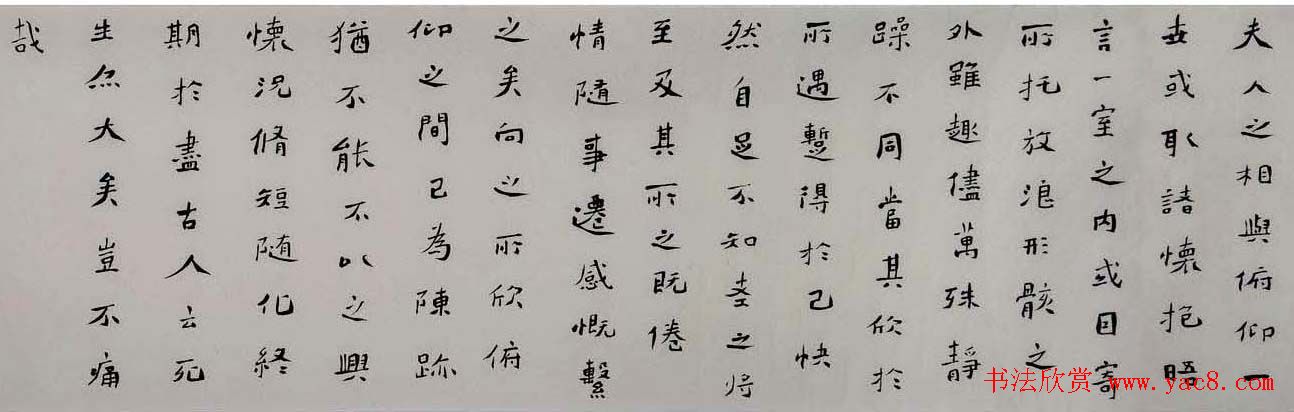 夫人之相與俯仰一
世或取諸懷抱晤
言一室之内或因寄
所托放浪形骸之
外雖趣儘萬殊靜
躁不同當其欣於
所遇蹔得於己快
然自足不知老之将
至及其所之既倦
情隨事遷感慨繫
之矣向之所欣俯
仰之間已為陳跡
猶不能不以之興
懷況脩短随化終
期於盡古人云死
生亦大矣豈不痛
哉
书法欣赏 www.yac8.com